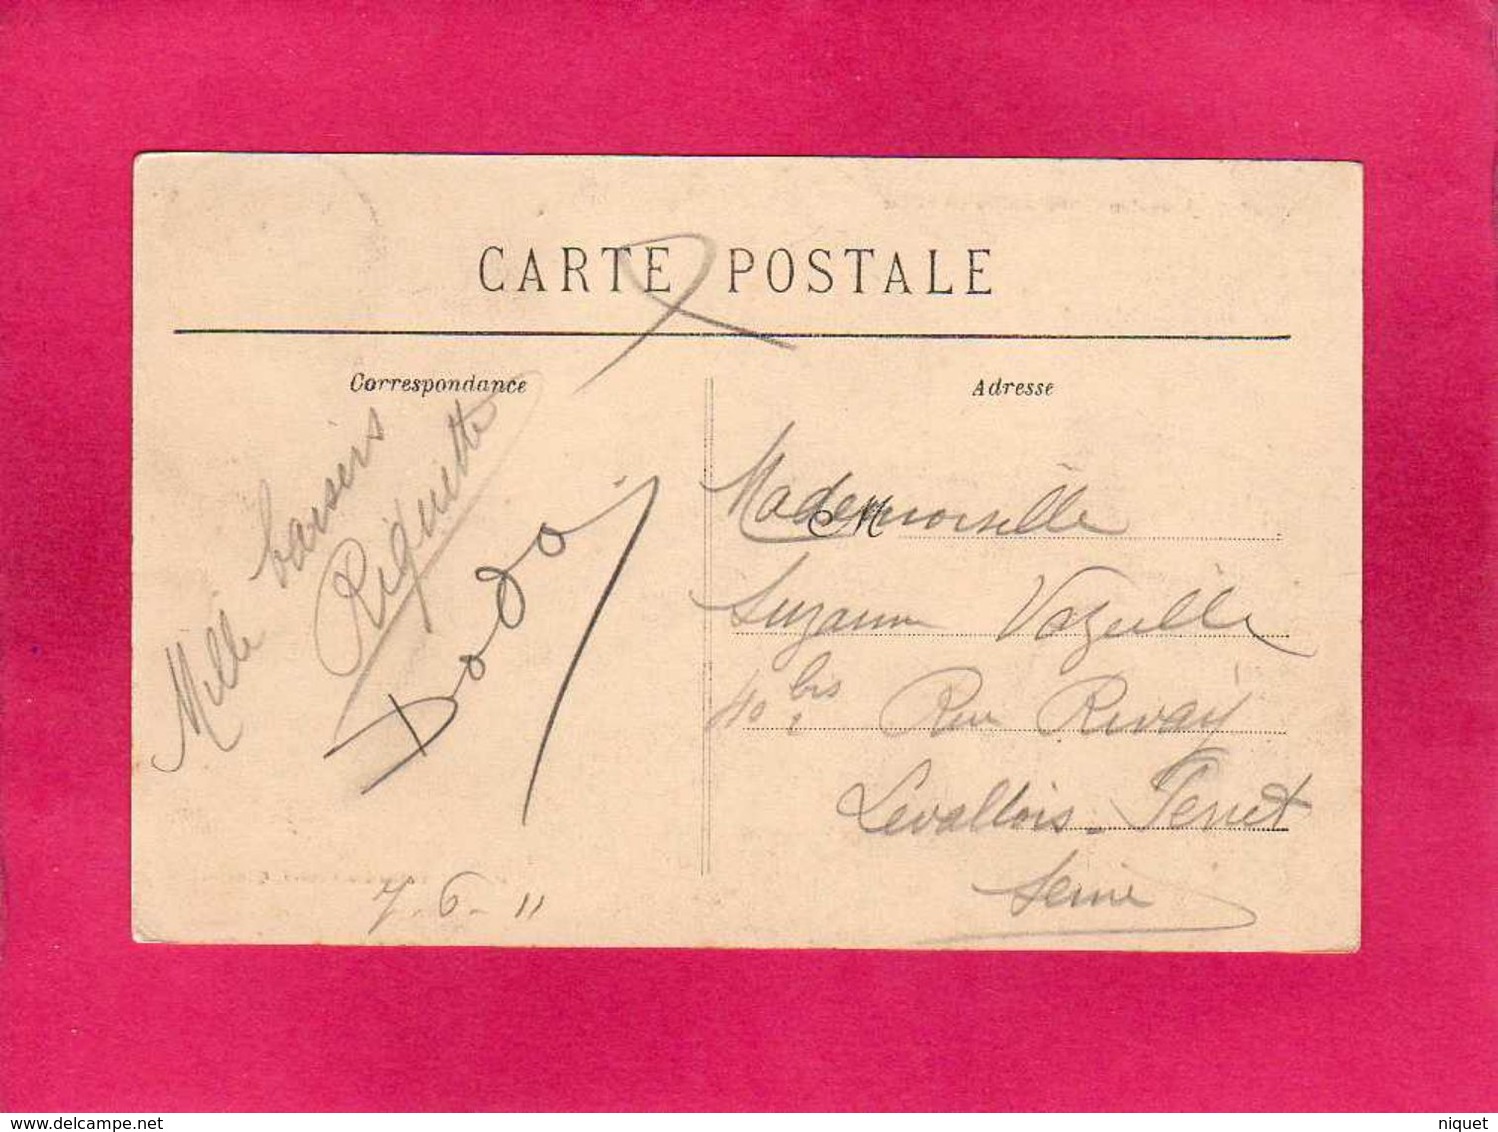 CARTE POSTALE
Correspondance
Adresse
Mille baisers
Riquette
Dodo
7-6-11
Mademoiselle
M
Suzanne Vazeille
40 bis Rue Rivay
Levallois-Perret
Seine
delcampe.net
niquet